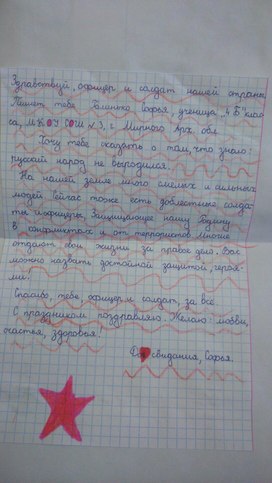 Здравствуй, офицер и солдат нашей страны
Пишет тебе Голинько Софья, ученица "4 Б" клас
са, МКОУ СОШ №3, г. Мирного Арх. обл.
Хочу тебе сказать о том, что знаю:
русский народ не выродился.
На нашей земле много смелых и сильных
людей. Сейчас тоже есть доблестные солда-
ты и офицеры, защищающие нашу Родину
в конфликтах и от террористов. Многие
отдают свои жизни за правое дело. Вас
можно назвать достойной защитой, героя-
ми!
Спасибо, тебе, офицер и солдат, за всё.
С праздником поздравляю. Желаю: любви,
счастья, здоровья!
До свидания, Софья.